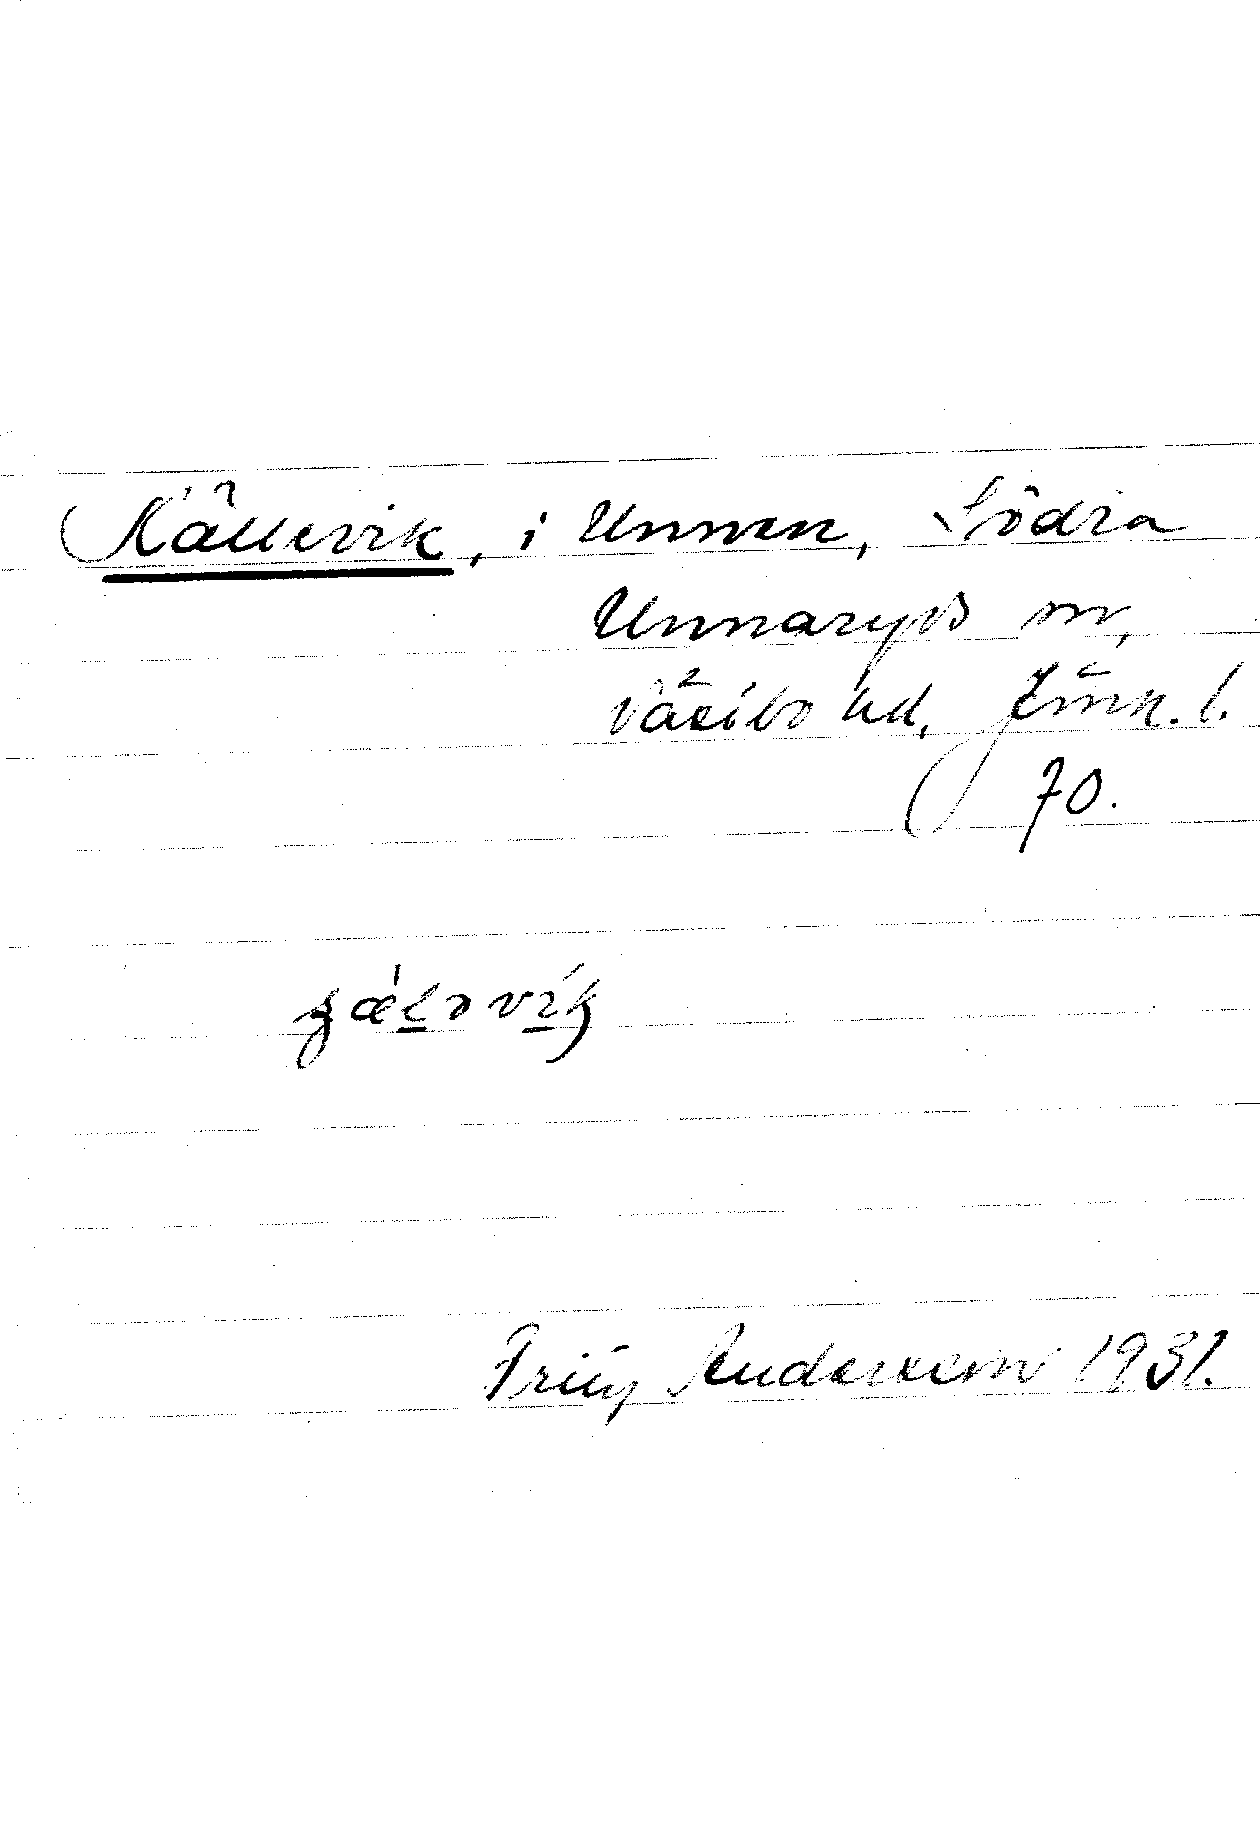 Källevik, i Unnen, Södra
Unnaryds sn,
Västbo hd, Jönk. l.
70.
Andersson 1931.